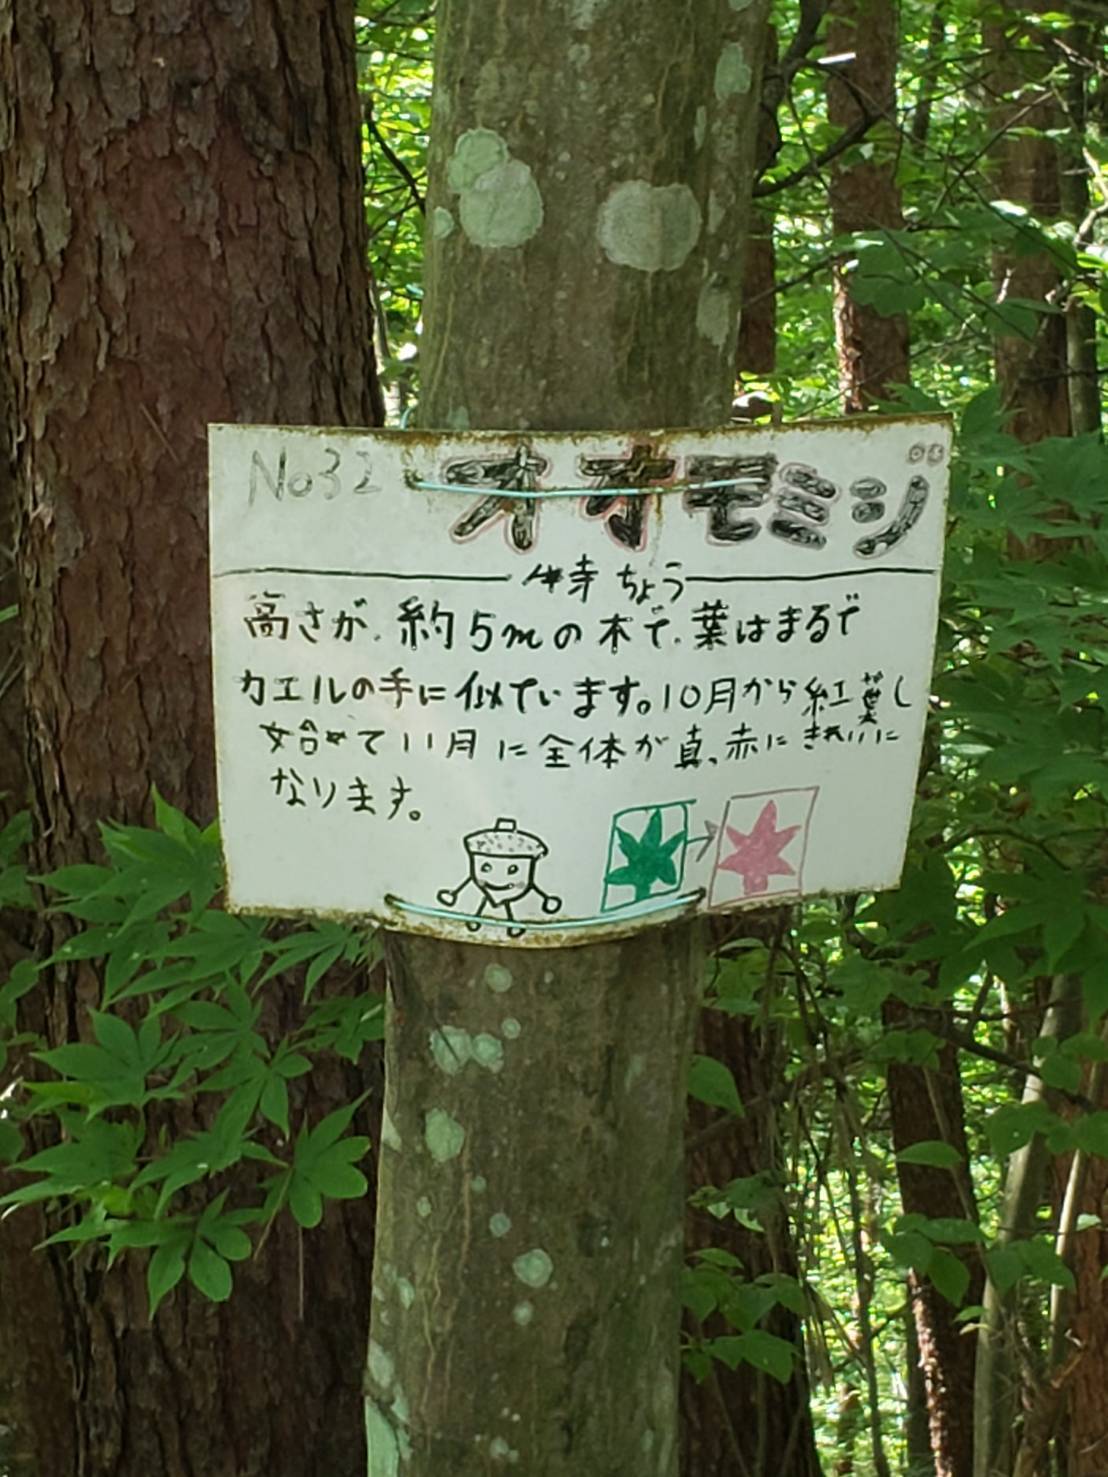 No32 オオモミジ
特ちょう
高さが、約5mの木で、葉はまるで
カエルの手に似ています。10月から紅葉し
始めて11月に全体が真っ赤にきれいに
なります。